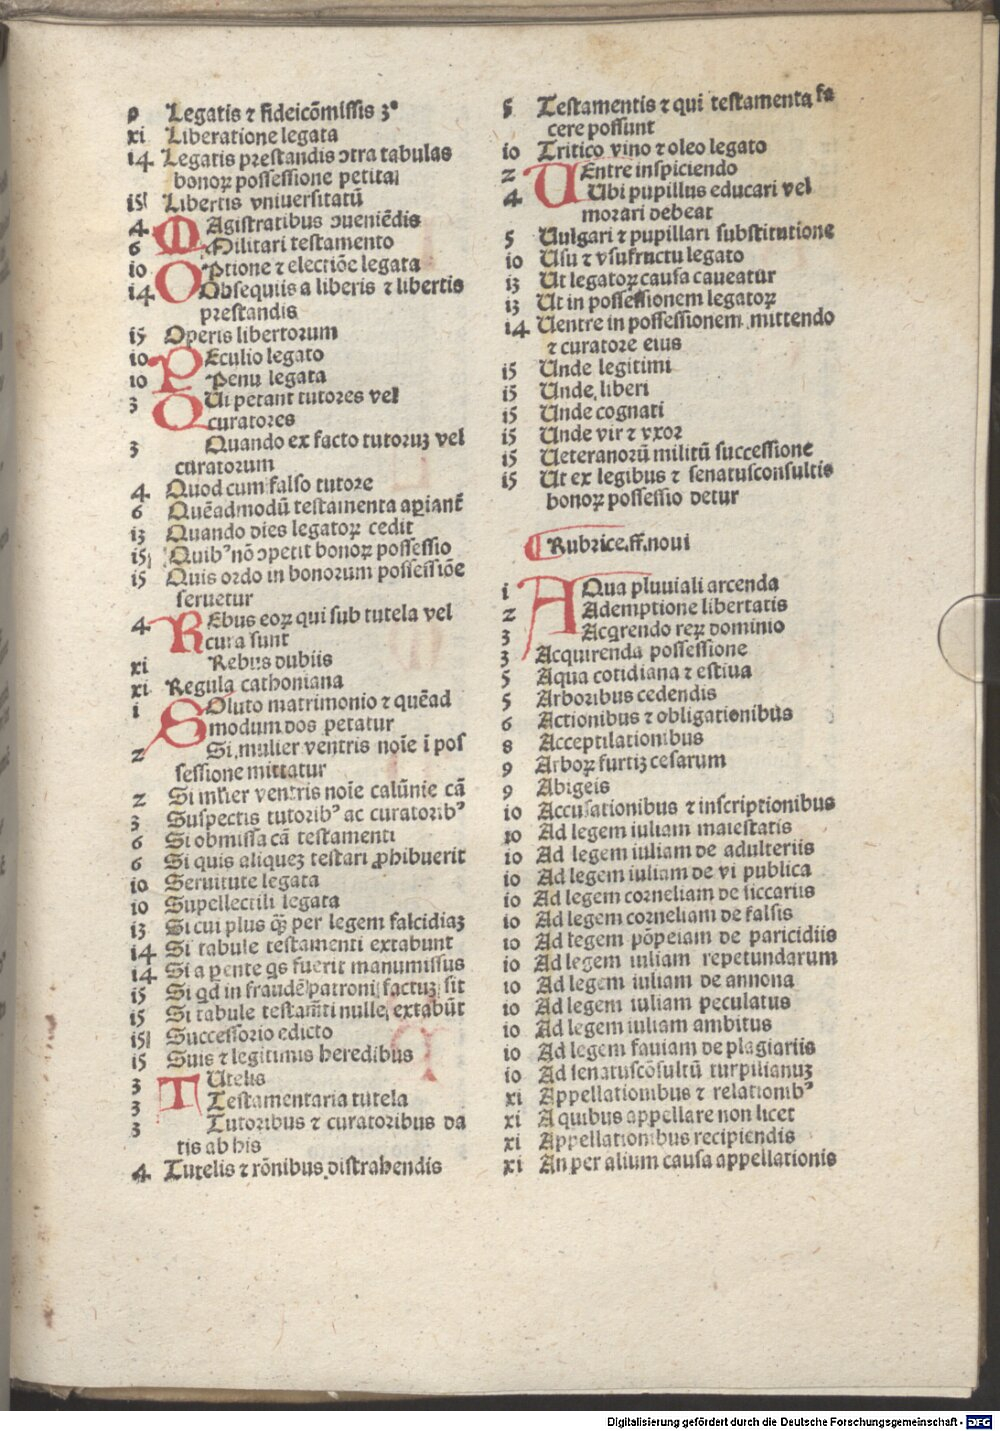 9 Legatis ⁊ fideicõmissis 3°
xi Liberatione legata
14 Legatis prestandis ɔtra tabulas
bonoꝝ possessione petita
15 Libertis vniuersitatũ
4 MAgistratibus ɔueniẽdis
6 Militari testamento
10 OPtione ⁊ electiõe legata
14 Obsequiis a liberis ⁊ libertis
prestandis
15 Operis libertorum
10 PEculio legato
10 Penu legata
3 QUi petant tutores vel
curatores
3 Quando ex facto tutoruꝫ vel
curatorum
4 Quod cum falso tutore
6 Quẽadmodũ testamenta aꝑiant̃
13 Quando dies legatoꝝ cedit
15 Quibꝰ nõ ɔpetit bonoꝝ possessio
15 Quis ordo in bonorum possessiõe
seruetur
4 REbus eoꝝ qui sub tutela vel
cura sunt
xi Rebus dubiis
xi Regula cathoniana
1 SOluto matrimonio ⁊ quẽad
modum dos petatur
2 Si mulier ventris noĩe ĩ pos
sessione mittatur
2 Si mlier ventris noĩe calũnie cã
3 Suspectis tutoribꝰ ac curatoribꝰ
6 Si obmissa cã testamenti
6 Si quis aliqueꝫ testari ꝓhibuerit
10 Seruitute legata
10 Supellectili legata
13 Si cui plus q̃ꝫ per legem falcidiaꝫ
14 Si tabule testamenti extabunt
14 Si a ꝑente qs fuerit manumissus
15 Si qd in fraudẽ patroni factuꝫ sit
15 Si tabule testam̃ti nulle extabũt
15 Successorio edicto
15 Suis ⁊ legitimis heredibus
3 TUtelis
3 Testamentaria tutela
3 Tutoribus ⁊ curatoribus da
tis ab his
4 Tutelis ⁊ rõnibus distrahendis
5 Testamentis ⁊ qui testamenta fa
cere possunt
10 Tritico vino ⁊ oleo legato
2 UEntre inspiciendo
4 Ubi pupillus educari vel
morari debeat
5 Uulgari ⁊ pupillari substitutione
10 Usu ⁊ vsufructu legato
13 Ut legatoꝝ causa caueatur
13 Ut in possessionem legatoꝝ
14 Uentre in possessionem mittendo
⁊ curatore eius
15 Unde legitimi
15 Unde liberi
15 Unde cognati
15 Unde vir ⁊ vxor
15 Ueteranorũ militũ successione
15 Ut ex legibus ⁊ senatusconsultis
bonoꝝ possessio detur
Rubrice.ff.noui
1 AQua pluuiali arcenda
2 Ademptione libertatis
3 Acqrendo reꝝ dominio
3 Acquirenda possessione
5 Aqua cotidiana ⁊ estiua
5 Arboribus cedendis
6 Actionibus ⁊ obligationibus
8 Acceptilationibus
9 Arboꝝ furtiꝫ cesarum
9 Abigeis
10 Accusationibus ⁊ inscriptionibus
10 Ad legem iuliam maiestatis
10 Ad legem iuliam de adulteriis
10 Ad legem iuliam de vi publica
10 Ad legem corneliam de siccariis
10 Ad legem corneliam de falsis
10 Ad legem põpeiam de paricidiis
10 Ad legem iuliam repetundarum
10 Ad legem iuliam de annona
10 Ad legem iuliam peculatus
10 Ad legem iuliam ambitus
10 Ad legem fauiam de plagiariis
10 Ad senatuscõsultũ turpilianuꝫ
xi Appellationibus ⁊ relationibꝰ
xi A quibus appellare non licet
xi Appellationibus recipiendis
xi An per alium causa appellationis
Digitalisierung gefördert durch die Deutsche Forschungsgemeinschaft - DFG